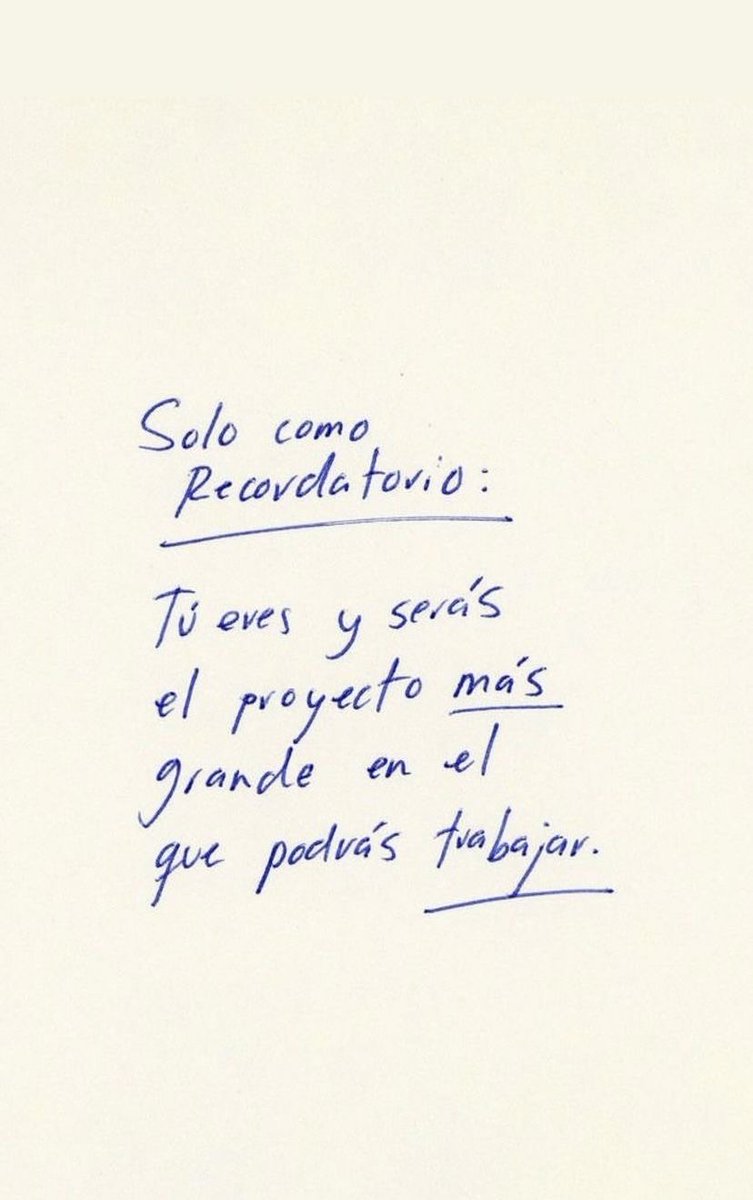 Solo como
Recordatorio:
Tú eres y serás
el proyecto más
grande en el
que podrás trabajar.